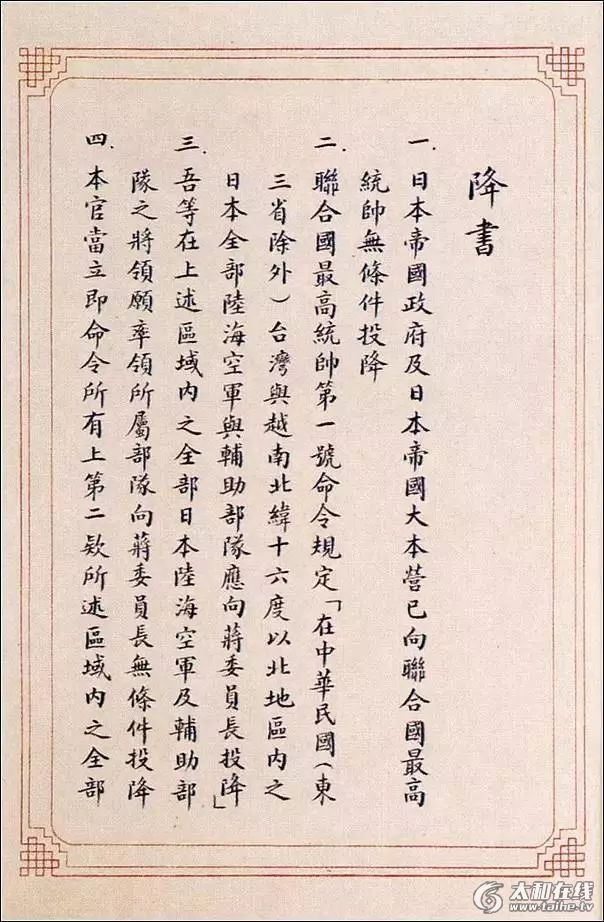 降書
一.日本帝國政府及日本帝國大本營已向聯合國最高
統帥無條件投降
二.聯合國最高統帥第一號命令規定「在中華民國(東
三省除外)台灣與越南北緯十六度以北地區內之
日本全部陸海空軍與輔助部隊應向蔣委員長投降」
三.吾等在上述區域內之全部日本陸海空軍及輔助部
隊之將領願率領所屬部隊向蔣委員長無條件投降
四.本官當立即命令所有上第二欵所述區域內之全部
太和在线
www.taihe.tv